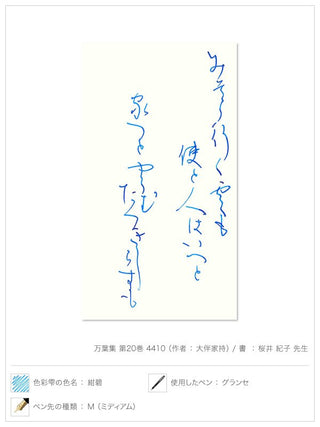 みそら行く雲も
使と人はいへと
家つとやらむ
たつきしらすも
万葉集 第20巻 4410 (作者：大伴家持) / 書 ：桜井 紀子 先生
色彩雫の色名： 紺碧
使用したペン： グランセ
ペン先の種類： M (ミディアム)